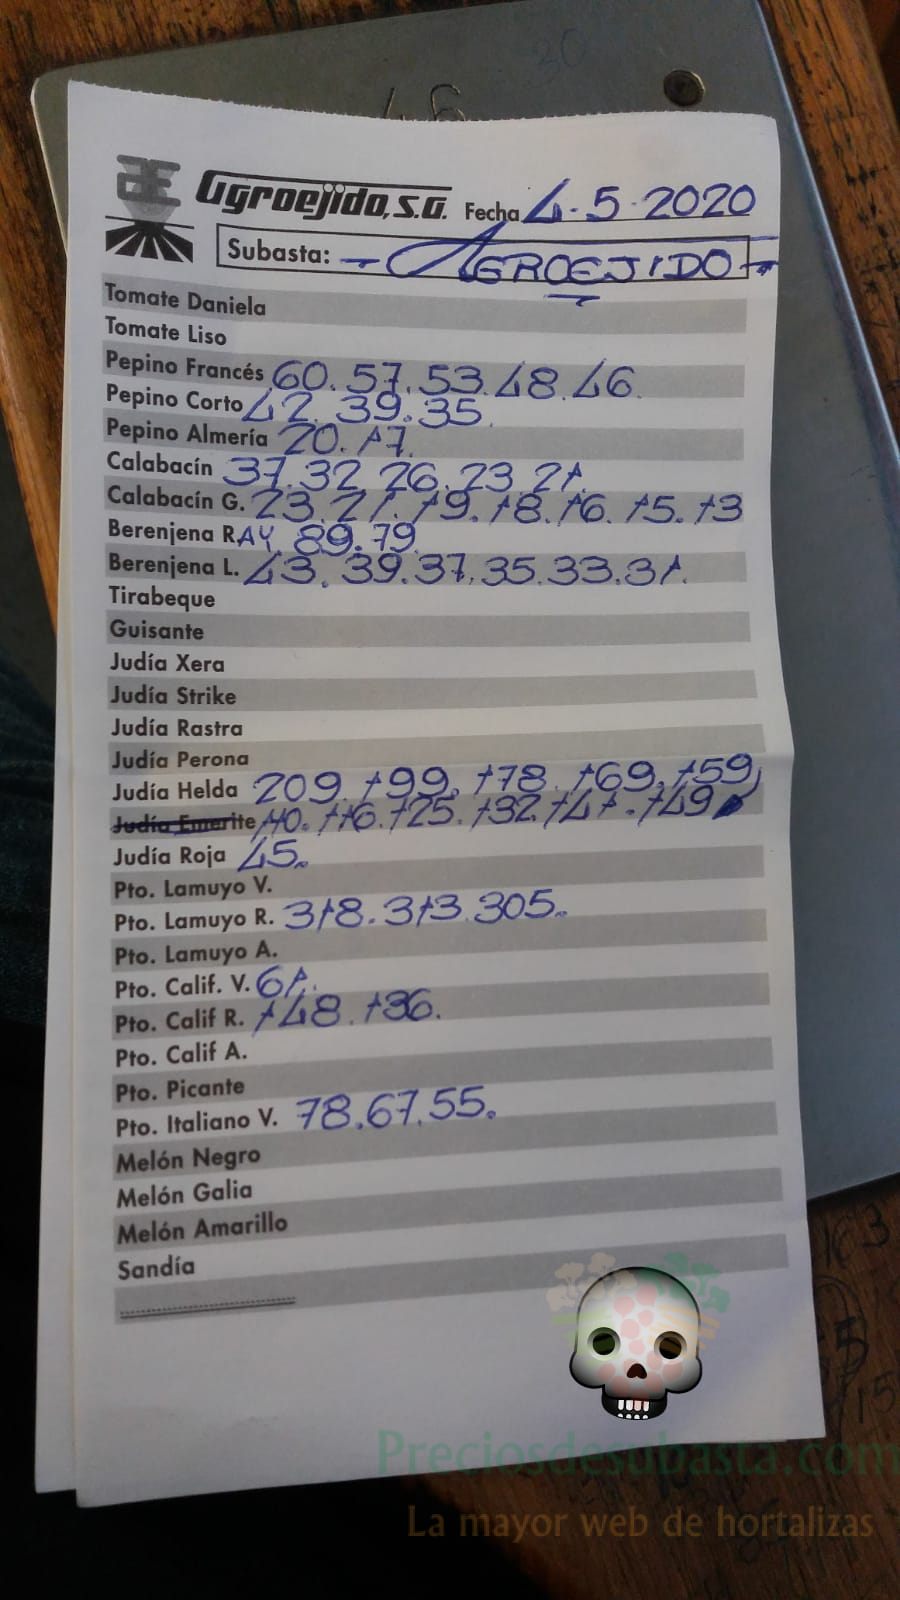 46
30
Agroejido, S.A. Fecha 4.5.2020
Subasta: - AGROEJIDO -
Tomate Daniela
Tomate Liso
Pepino Francés 60. 57. 53. 48. 46.
Pepino Corto 42. 39. 35.
Pepino Almería 20. 17.
Calabacín 37. 32. 26. 23. 21.
Calabacín G. 23. 21. 19. 18. 16. 15. 13
Berenjena RAY. 89. 79.
Berenjena L. 43. 39. 37. 35. 33. 31.
Tirabeque
Guisante
Judía Xera
Judía Strike
Judía Rastra
Judía Perona
Judía Helda 209. 199. 178. 169. 159,
Judía Emerite 110. 116. 125. 132. 141. 149
Judía Roja 45.
Pto. Lamuyo V.
Pto. Lamuyo R. 318. 313. 305.
Pto. Lamuyo A.
Pto. Calif. V. 61.
Pto. Calif R. 148. 136.
Pto. Calif A.
Pto. Picante
Pto. Italiano V. 78. 67. 55.
Melón Negro
Melón Galia
Melón Amarillo
Sandía
Preciosdesubasta.com
La mayor web de hortalizas